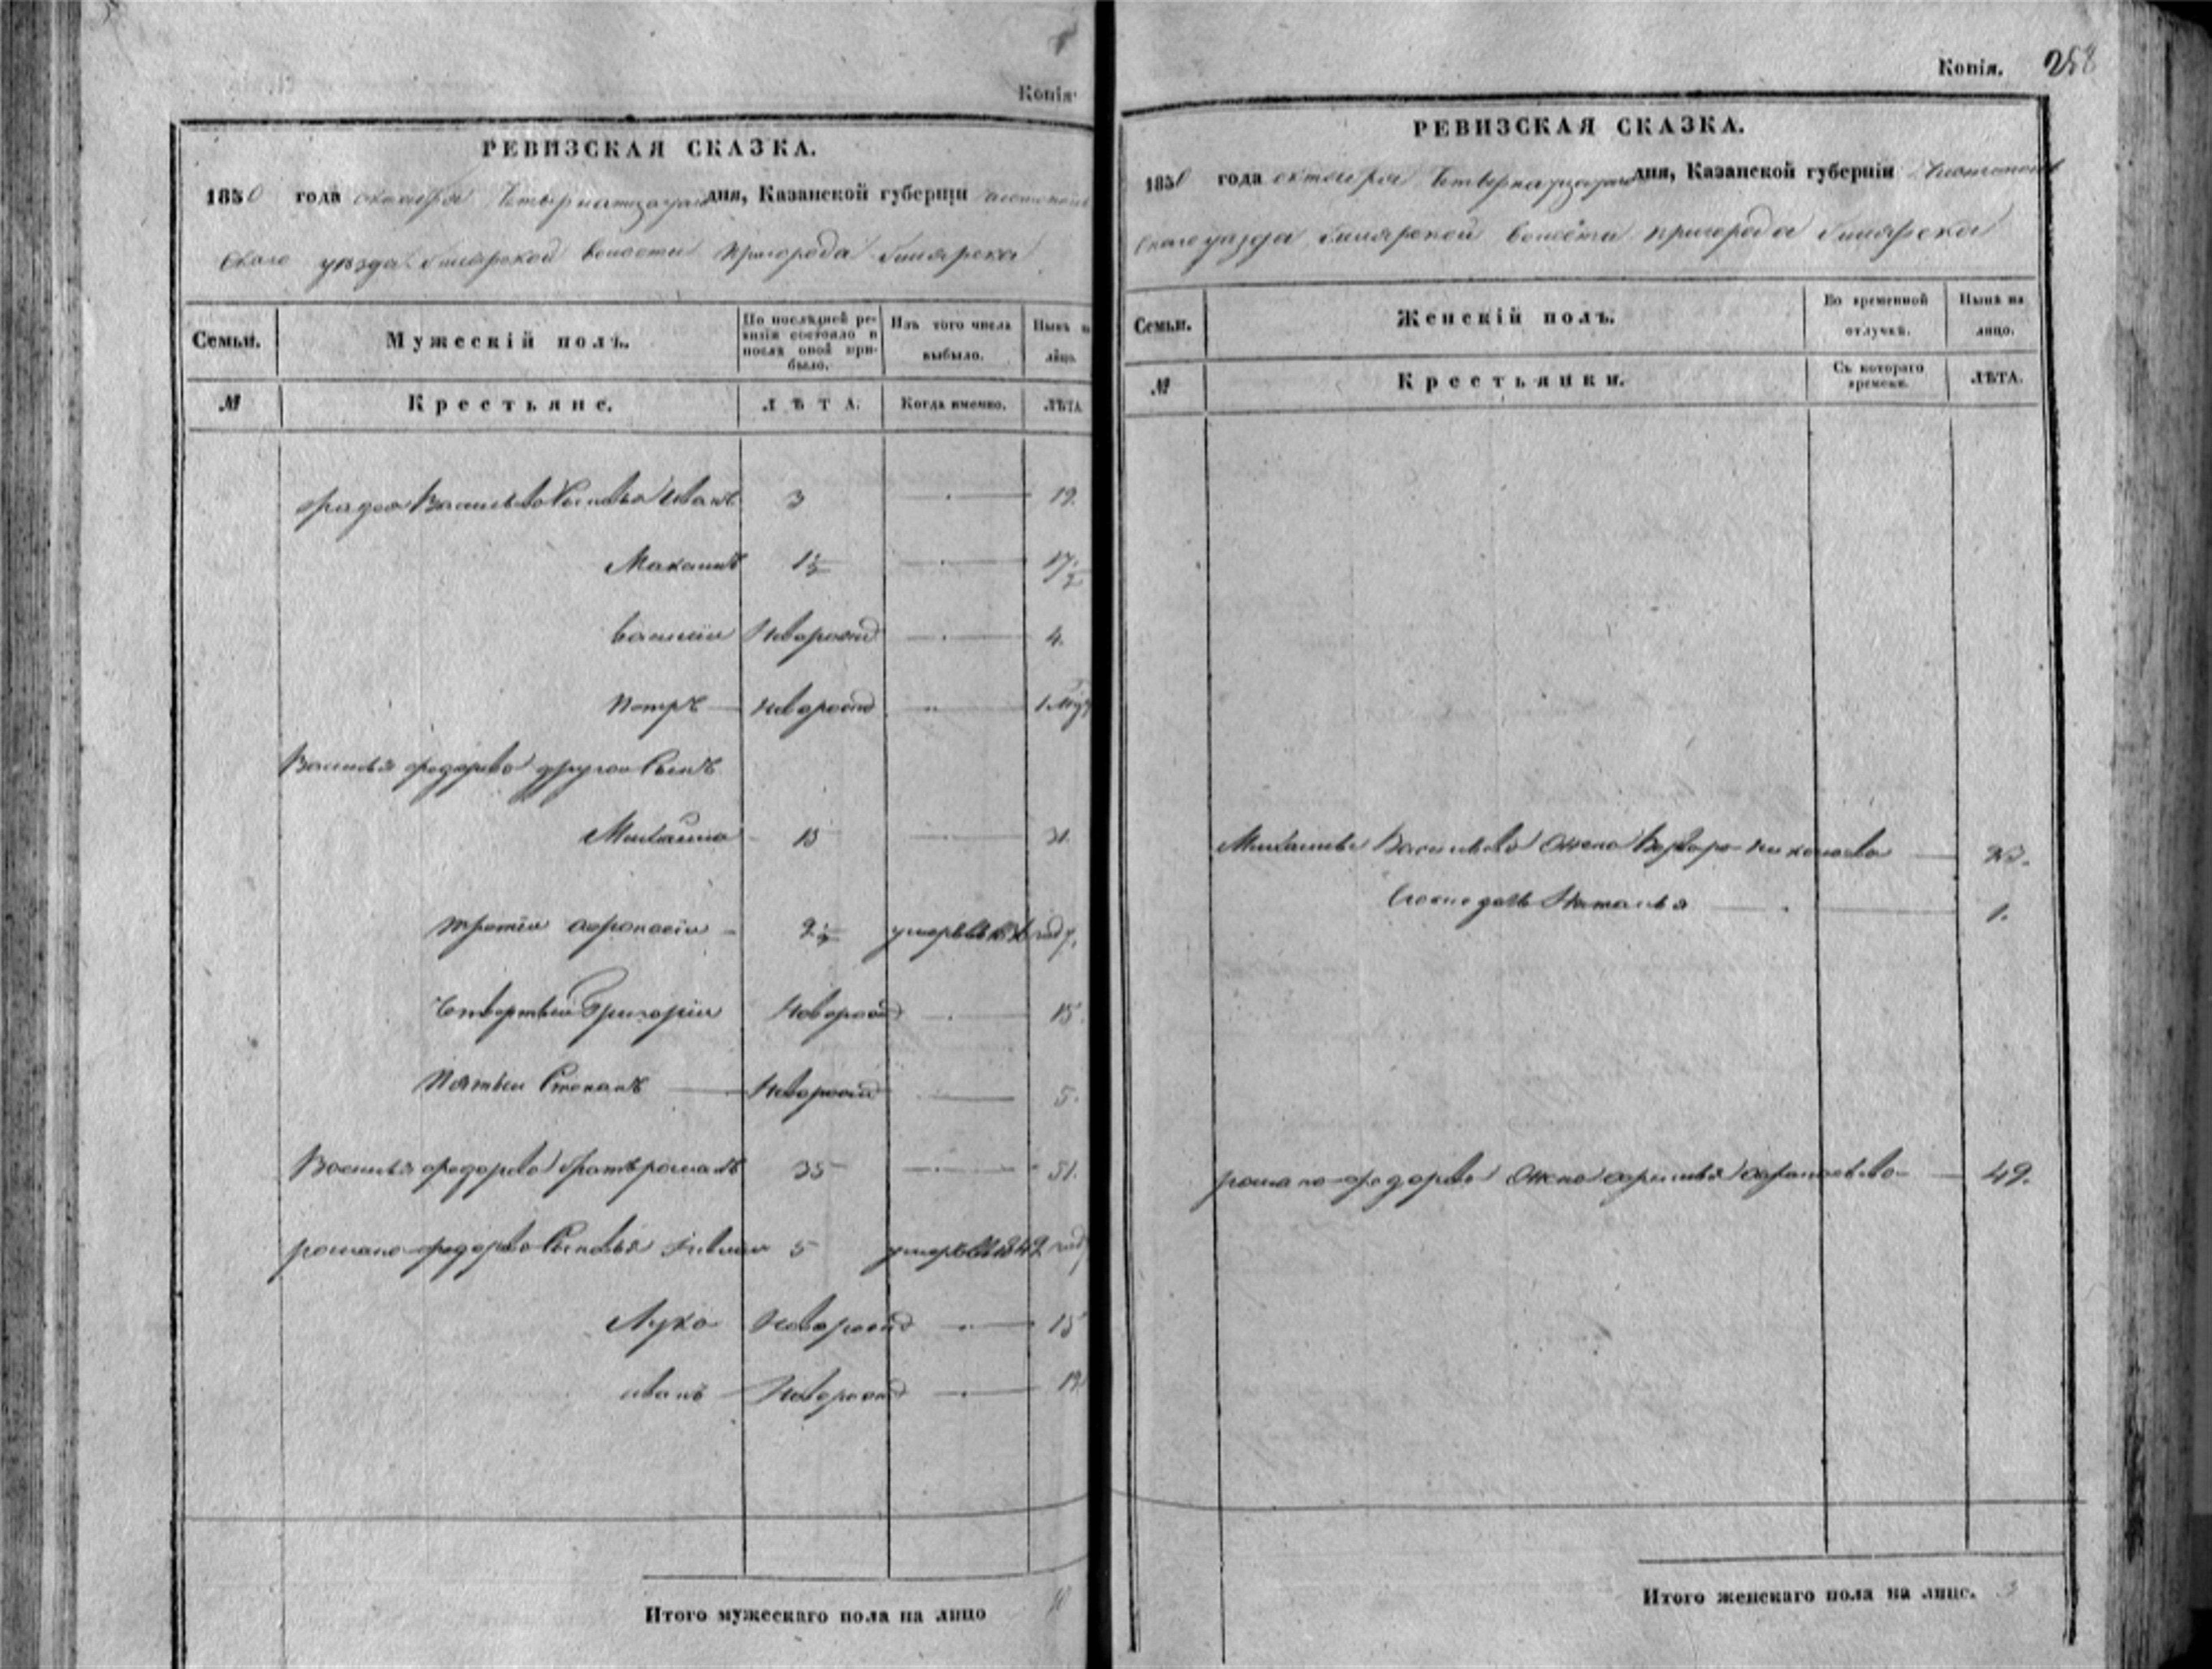 Копія
РЕВИЗСКАЯ СКАЗКА.
1850 года октября Четвернатцатаго дня, Казанской губерніи Чистополь
скаго уезда билярской волости пригорода билярска
Семьи. Мужескій полъ. По послѣдней ревизіи состояло и послѣ оной прибыло. Изъ того числа выбыло. Нынѣ на лицо.
№ Крестьяне. ЛѢТА. Когда именно. ЛѢТА
Васильева Сыновья Иванъ 3 19.
Максимъ 1½ 17½
василіи Новорожд 4.
Петръ Новорожд 1
Василья федорова другои Сынъ
Михаило 15 31.
третіи афонасіи 2½ умеръ въ году,
Четвертыи Григоріи Новорожд 15.
Пятыи Степанъ Новорожд 5.
Василья федорова братъ романъ 35 51.
романа федорова Сыновья 5 умеръ въ 1849 году
Лука Новорожд 15
иванъ Новорожд
Итого мужескаго пола на лицо 10
Копія. 258
РЕВИЗСКАЯ СКАЗКА.
1850 года октября Четвернатцатаго дня, Казанской губерніи Чистополь
скаго уезда билярской волости пригорода билярска
Семьи. Женскій полъ. Во временной отлучкѣ. Нынѣ на лицо.
№ Крестьянки. Съ котораго времени. ЛѢТА.
Михаилы Васильева жена Варвара николаева 23.
дочь Наталья 1.
романа федорова жена афонасьева 49.
Итого женскаго пола на лице. 3